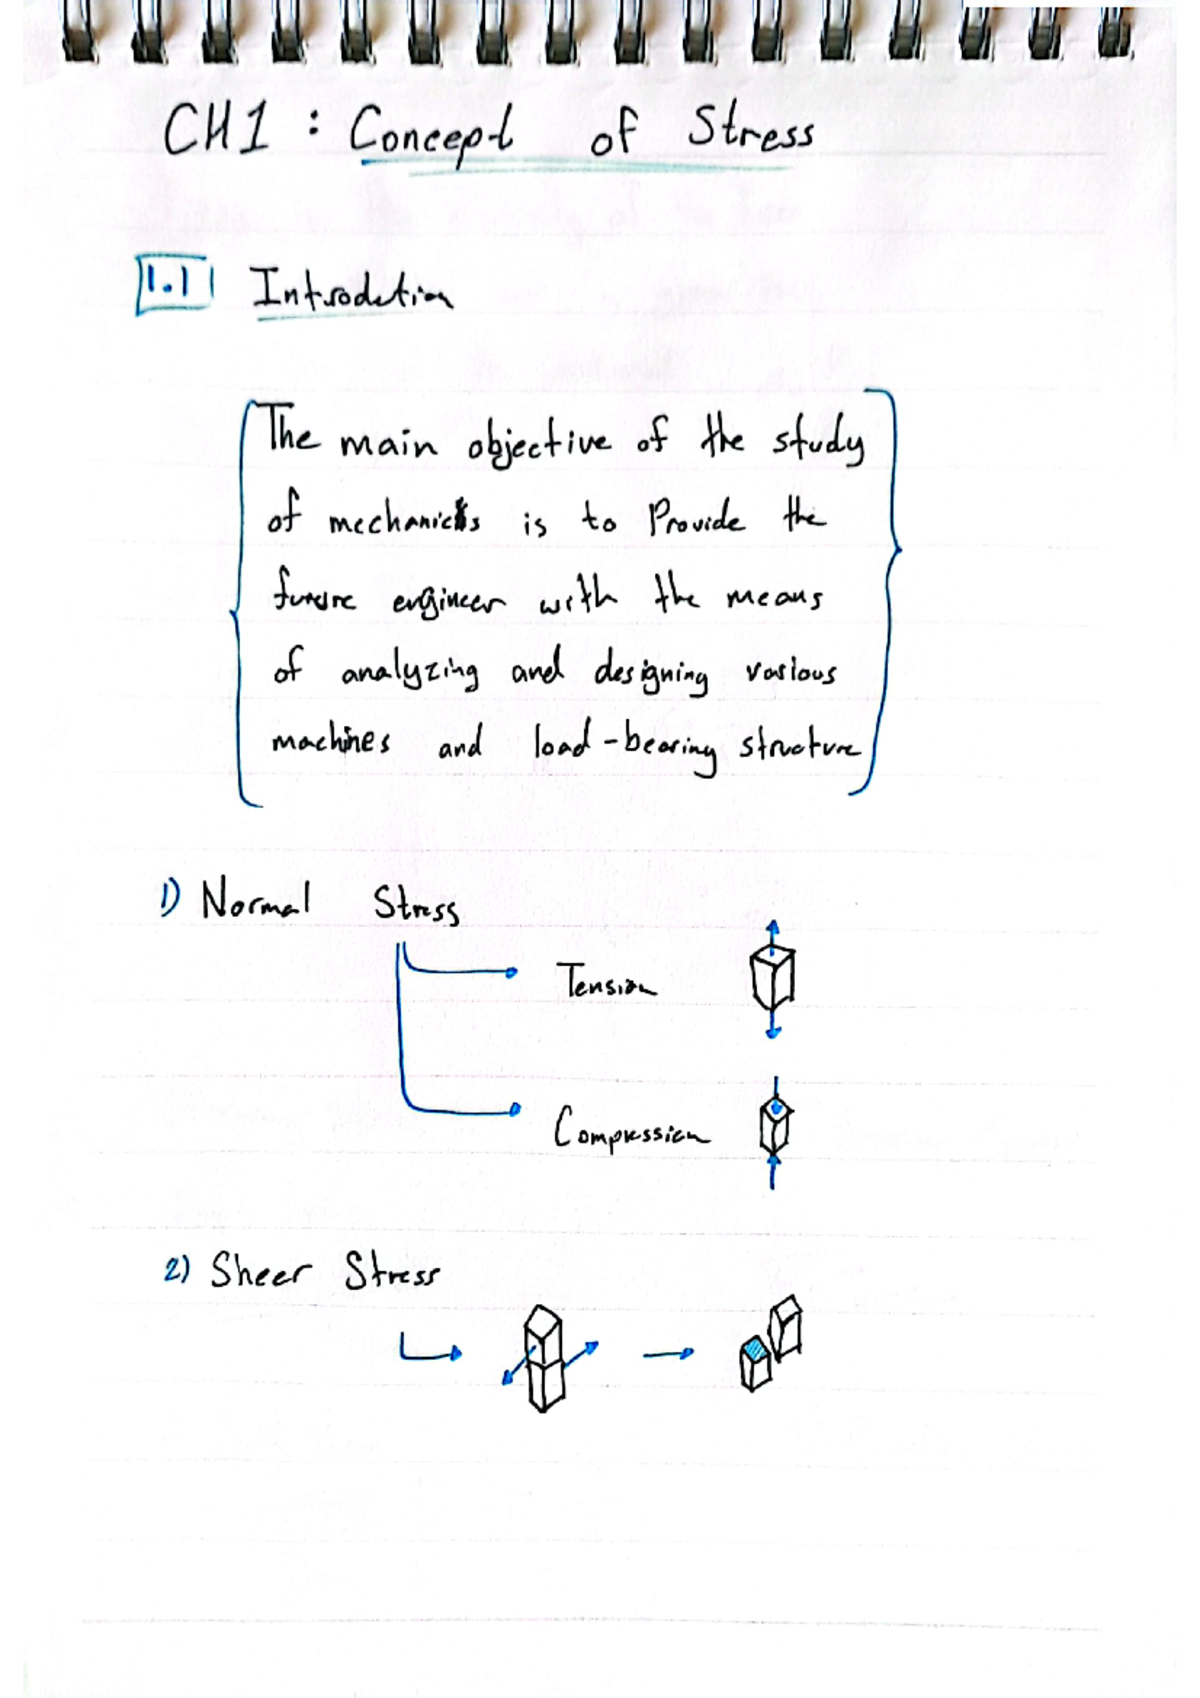 CH1 : Concept of Stress
1.1 Introdution
The main objective of the study
of mechanics is to Provide the
future engineer with the means
of analyzing and designing various
machines and load-bearing structure
1) Normal Stress
Tension
Compression
2) Sheer Stress